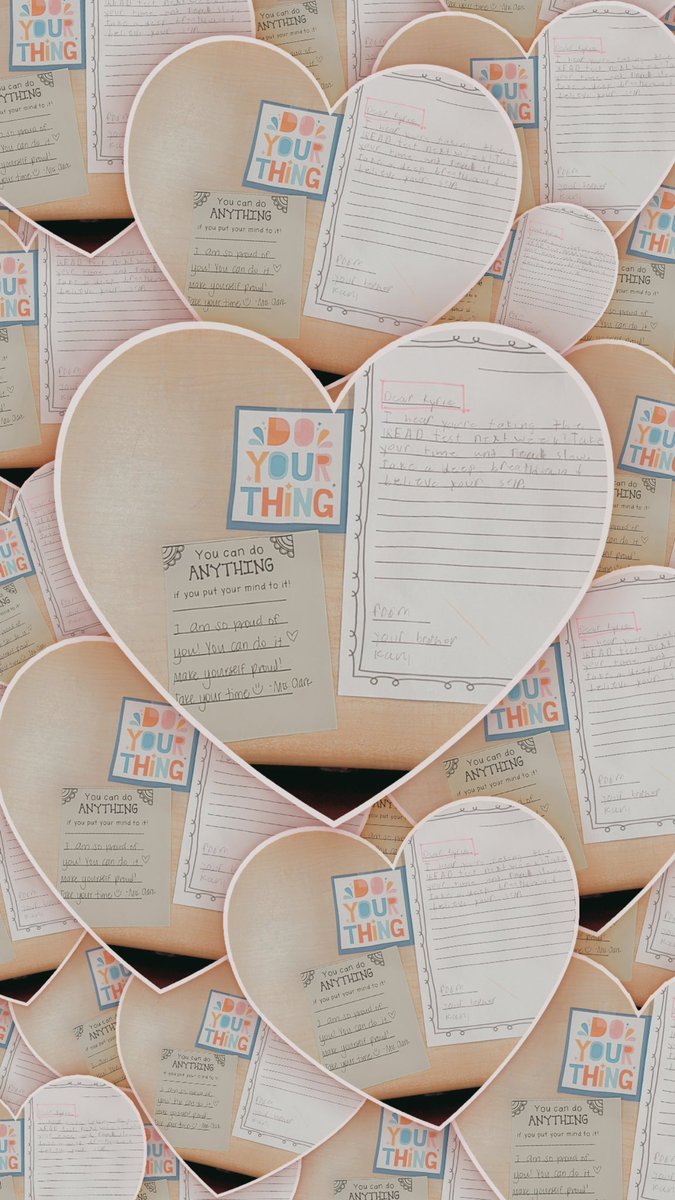 DO
YOUR
THING
You can do
ANYTHING
if you put your mind to it!
I am so proud of
you! You can do it
make yourself proud!
Take your time -Mrs. Clark
Dear kyrie,
I hear you're taking the
READ test next week! Take
your time and slow.
Take a deep
believe your self.
From
your brother